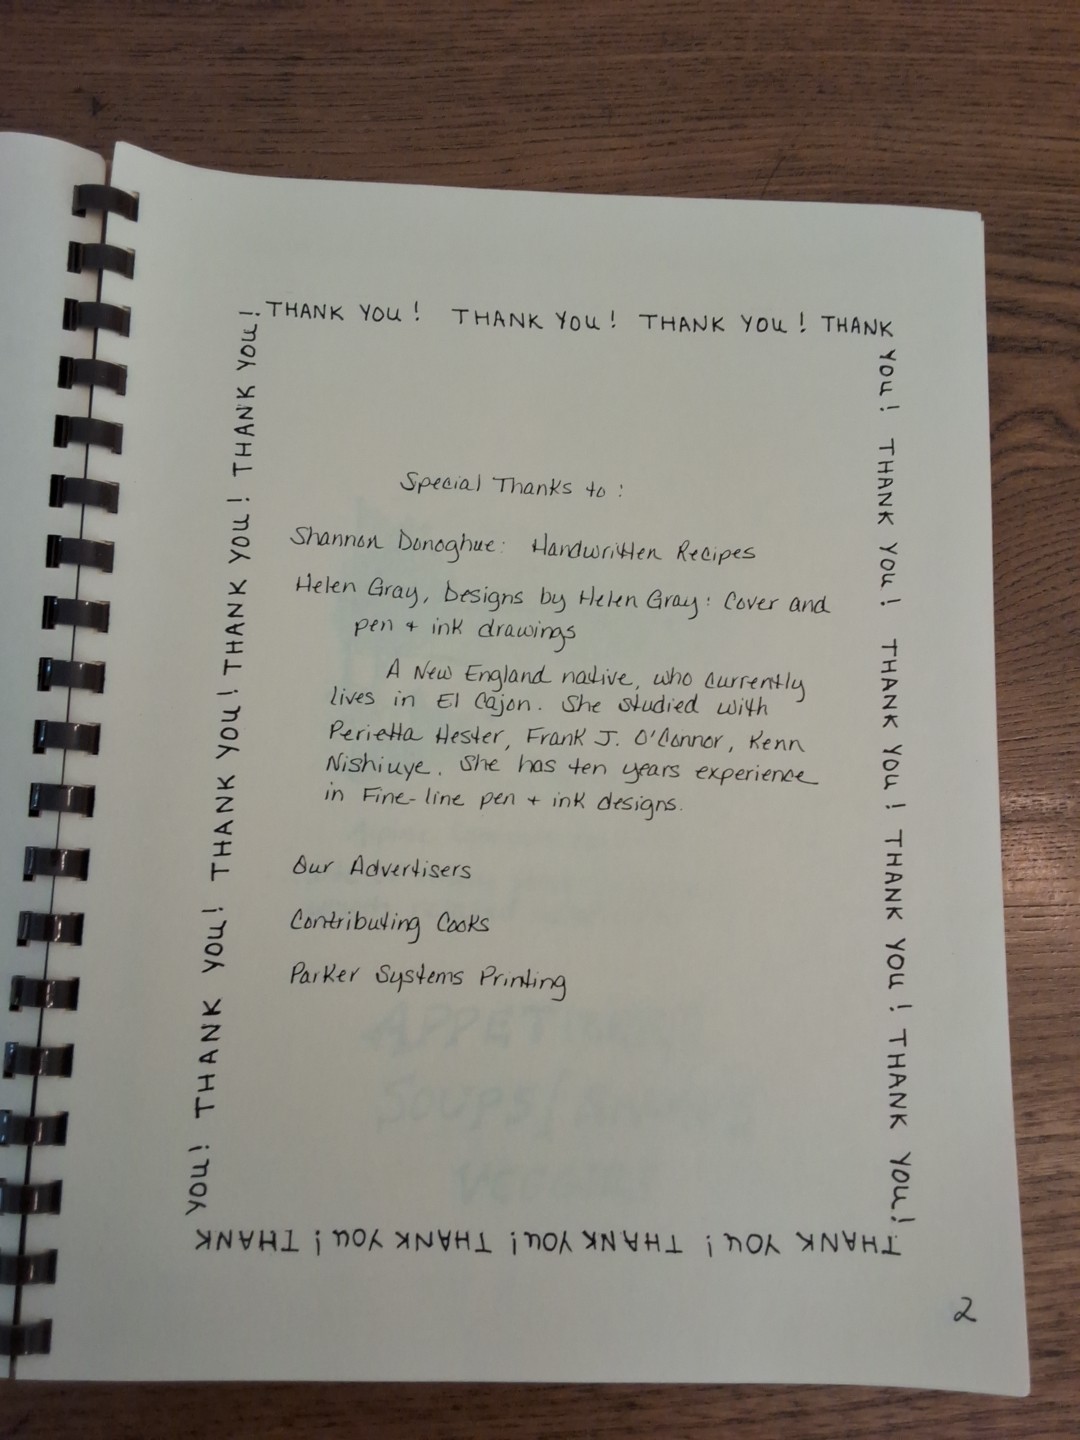 THANK YOU! THANK YOU! THANK YOU! THANK
YOU! THANK YOU! THANK YOU! THANK YOU! THANK YOU!
THANK YOU! THANK YOU! THANK YOU! THANK
YOU! THANK YOU! THANK YOU! THANK YOU! THANK YOU!
Special Thanks to:
Shannon Donoghue: Handwritten Recipes
Helen Gray, Designs by Helen Gray: Cover and
pen + ink drawings
A New England native, who currently
lives in El Cajon. She studied with
Perietta Hester, Frank J. O'Connor, Kenn
Nishiuye. She has ten years experience
in Fine-line pen + ink designs.
Our Advertisers
Contributing Cooks
Parker Systems Printing
APPETIZERS
SOUPS/SALADS
VEGGIES
2